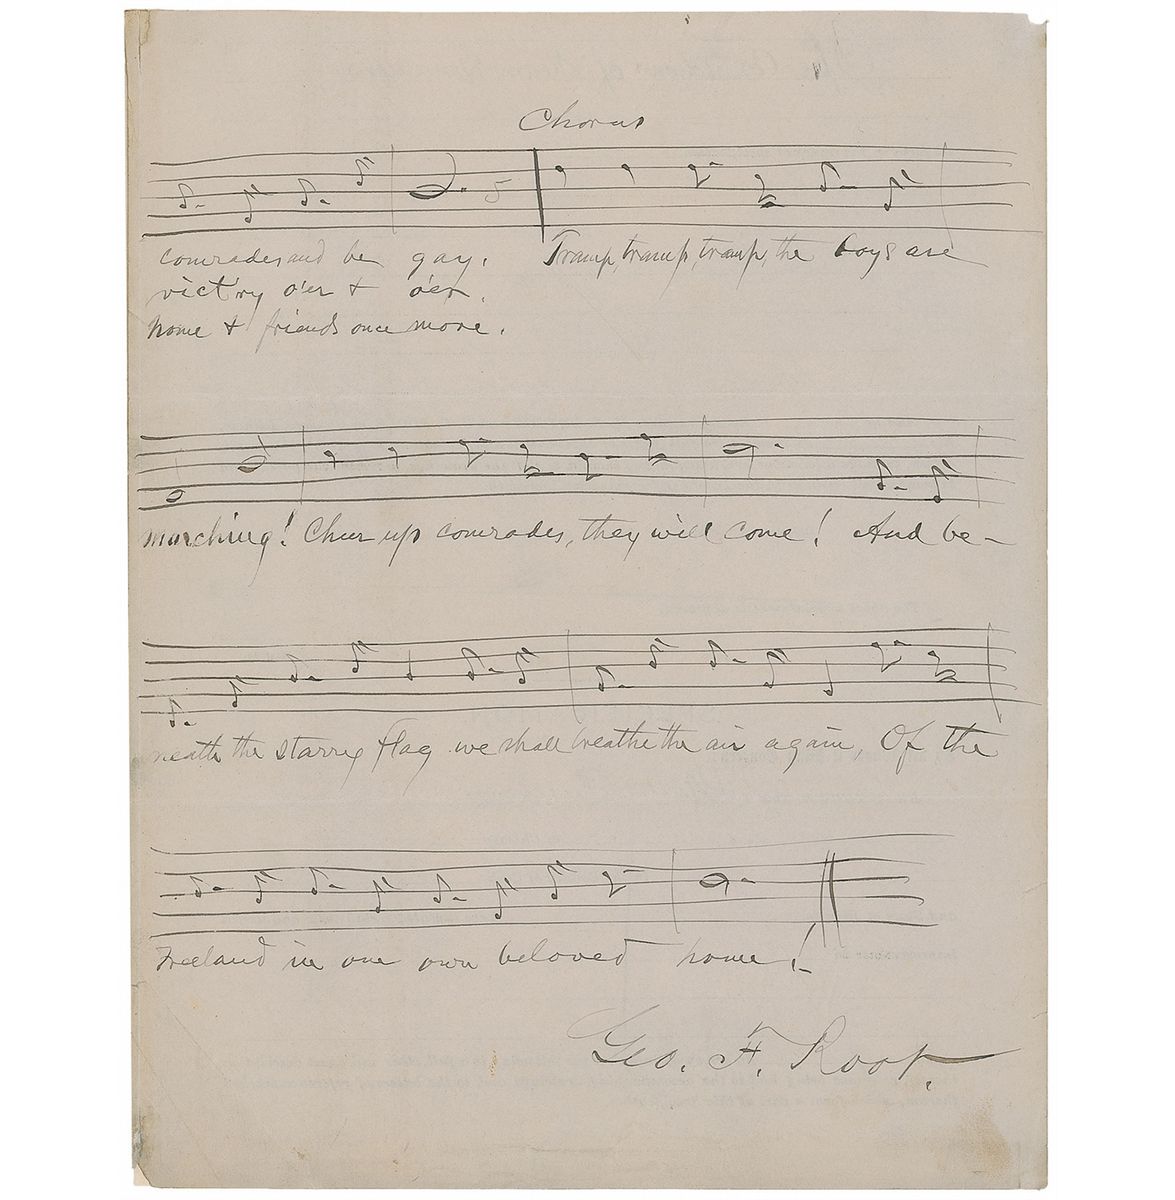 Chorus
comrades and be gay. Tramp, tramp, tramp, the boys are
vict'ry o'er & o'er.
home & friends once more.
marching! Cheer up comrades, they will come! And be-
neath the starry flag we shall breathe the air again, Of the
Freeland in our own beloved home!
Geo. F. Root.